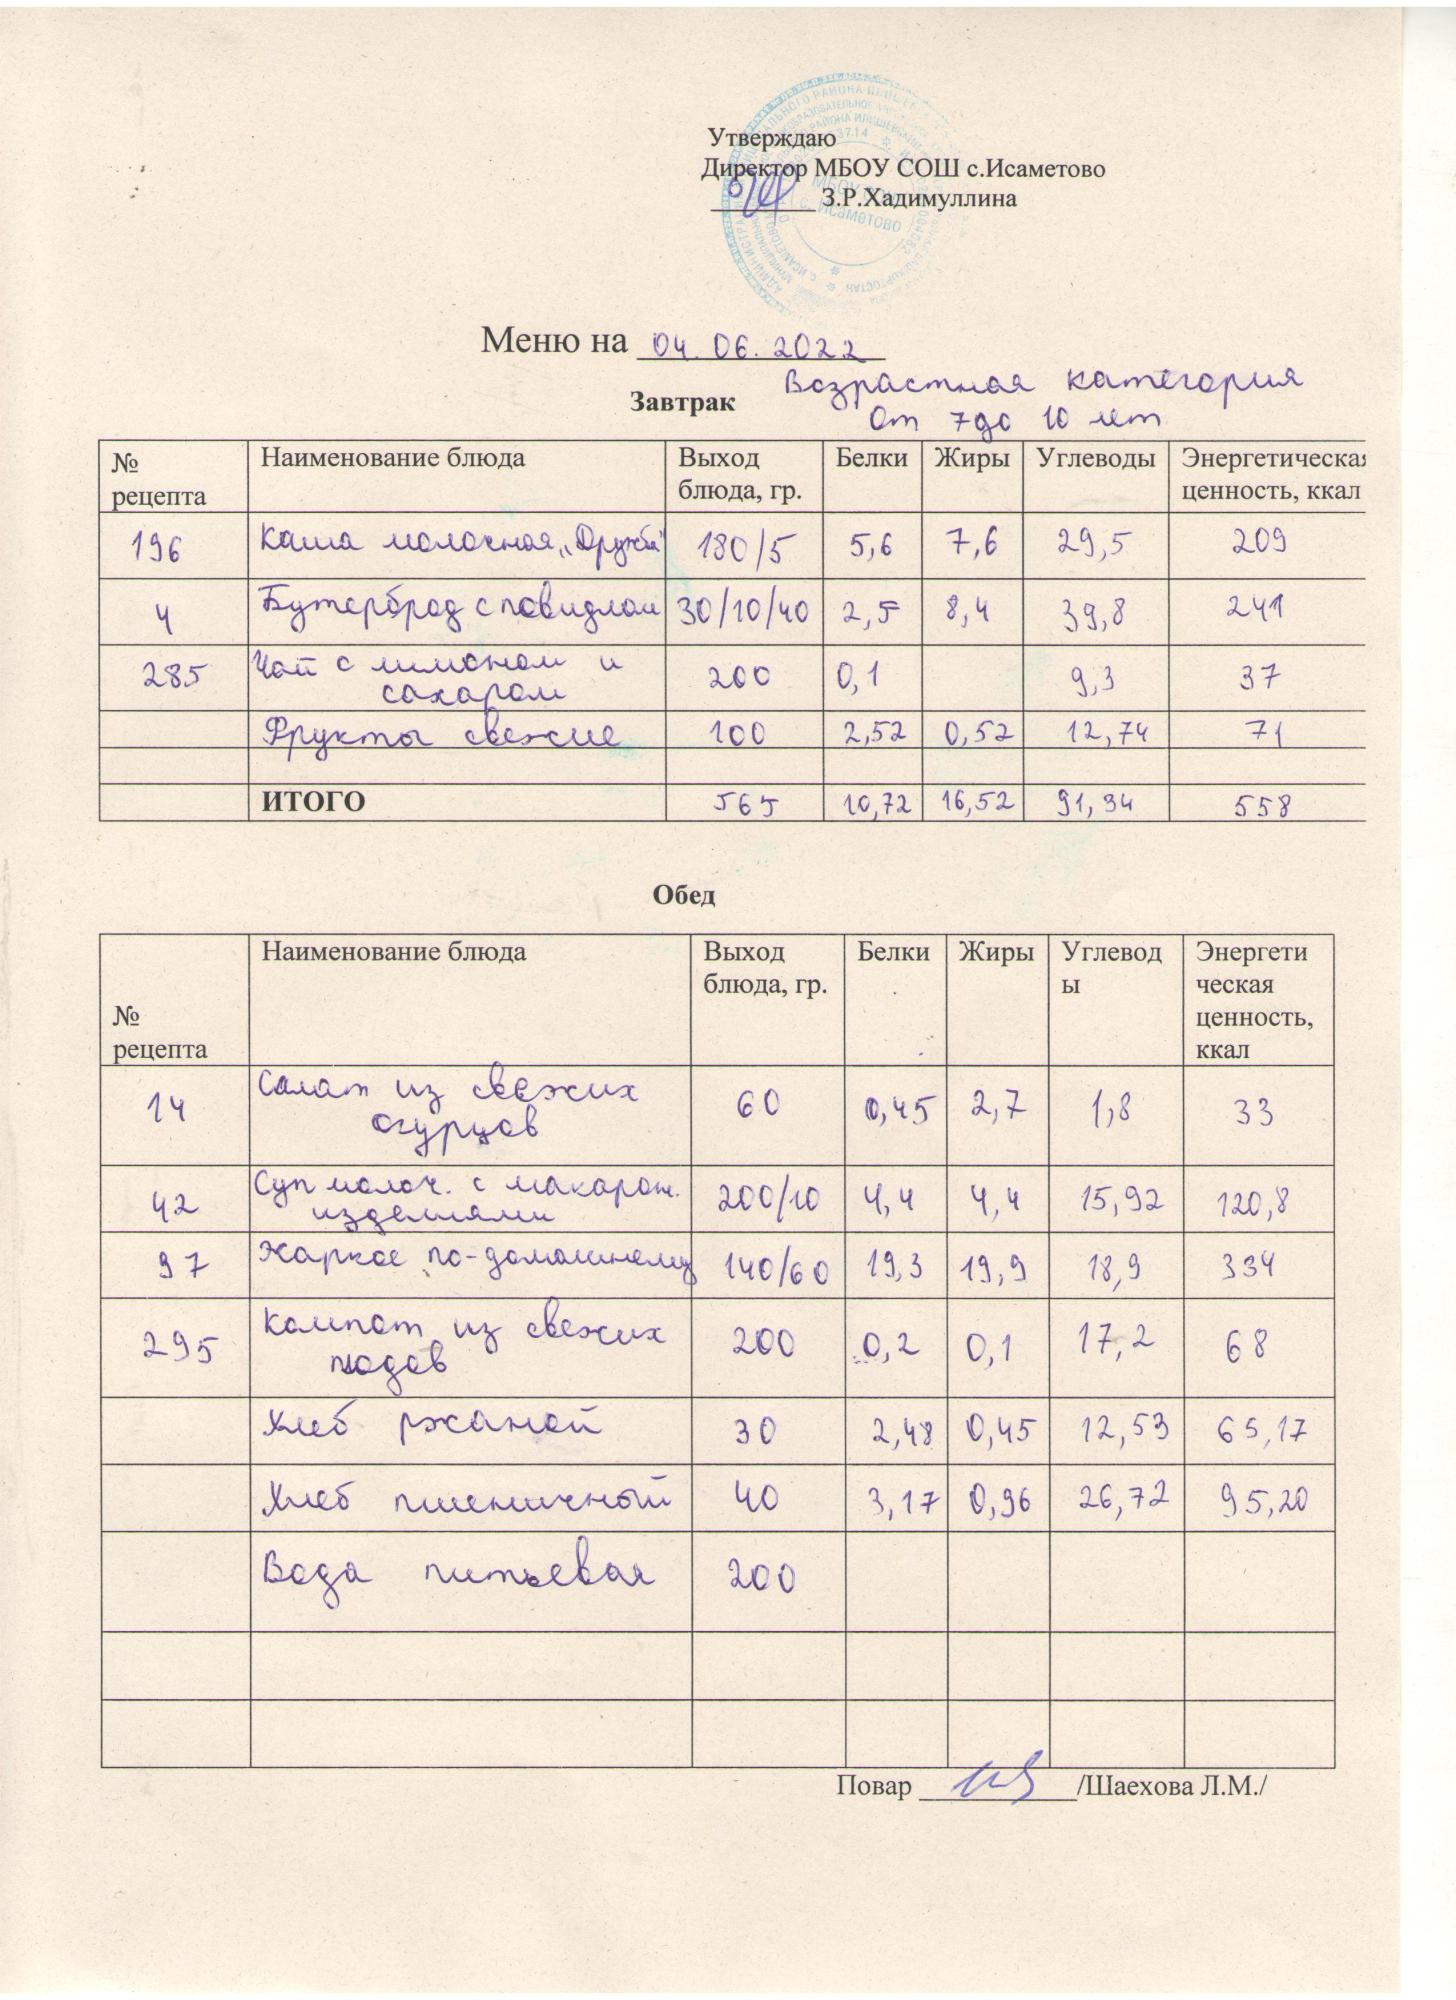 Утверждаю
Директор МБОУ СОШ с.Исаметово
З.Р.Хадимуллина
МБОУ СОШ
с. Исаметово
Меню на 04.06.2022
Возрастная категория
Завтрак
от 7 до 10 лет
№ рецепта Наименование блюда Выход блюда, гр. Белки Жиры Углеводы Энергетическая ценность, ккал
196 Каша молочная „Дружба" 180/5 5,6 7,6 29,5 209
4 Бутерброд с повидлом 30/10/40 2,5 8,4 39,8 241
285 Чай с лимоном и сахаром 200 0,1 9,3 37
Фрукты свежие 100 2,52 0,52 12,74 71
ИТОГО 565 10,72 16,52 91,34 558
Обед
№ рецепта Наименование блюда Выход блюда, гр. Белки Жиры Углеводы Энергетическая ценность, ккал
14 Салат из свежих огурцов 60 0,45 2,7 1,8 33
42 Суп молоч. с макарон. изделиями 200/10 4,4 4,4 15,92 120,8
97 Жаркое по-домашнему 140/60 19,3 19,9 18,9 334
295 Компот из свежих плодов 200 0,2 0,1 17,2 68
Хлеб ржаной 30 2,48 0,45 12,53 65,17
Хлеб пшеничный 40 3,17 0,96 26,72 95,20
Вода питьевая 200
Повар /Шаехова Л.М./